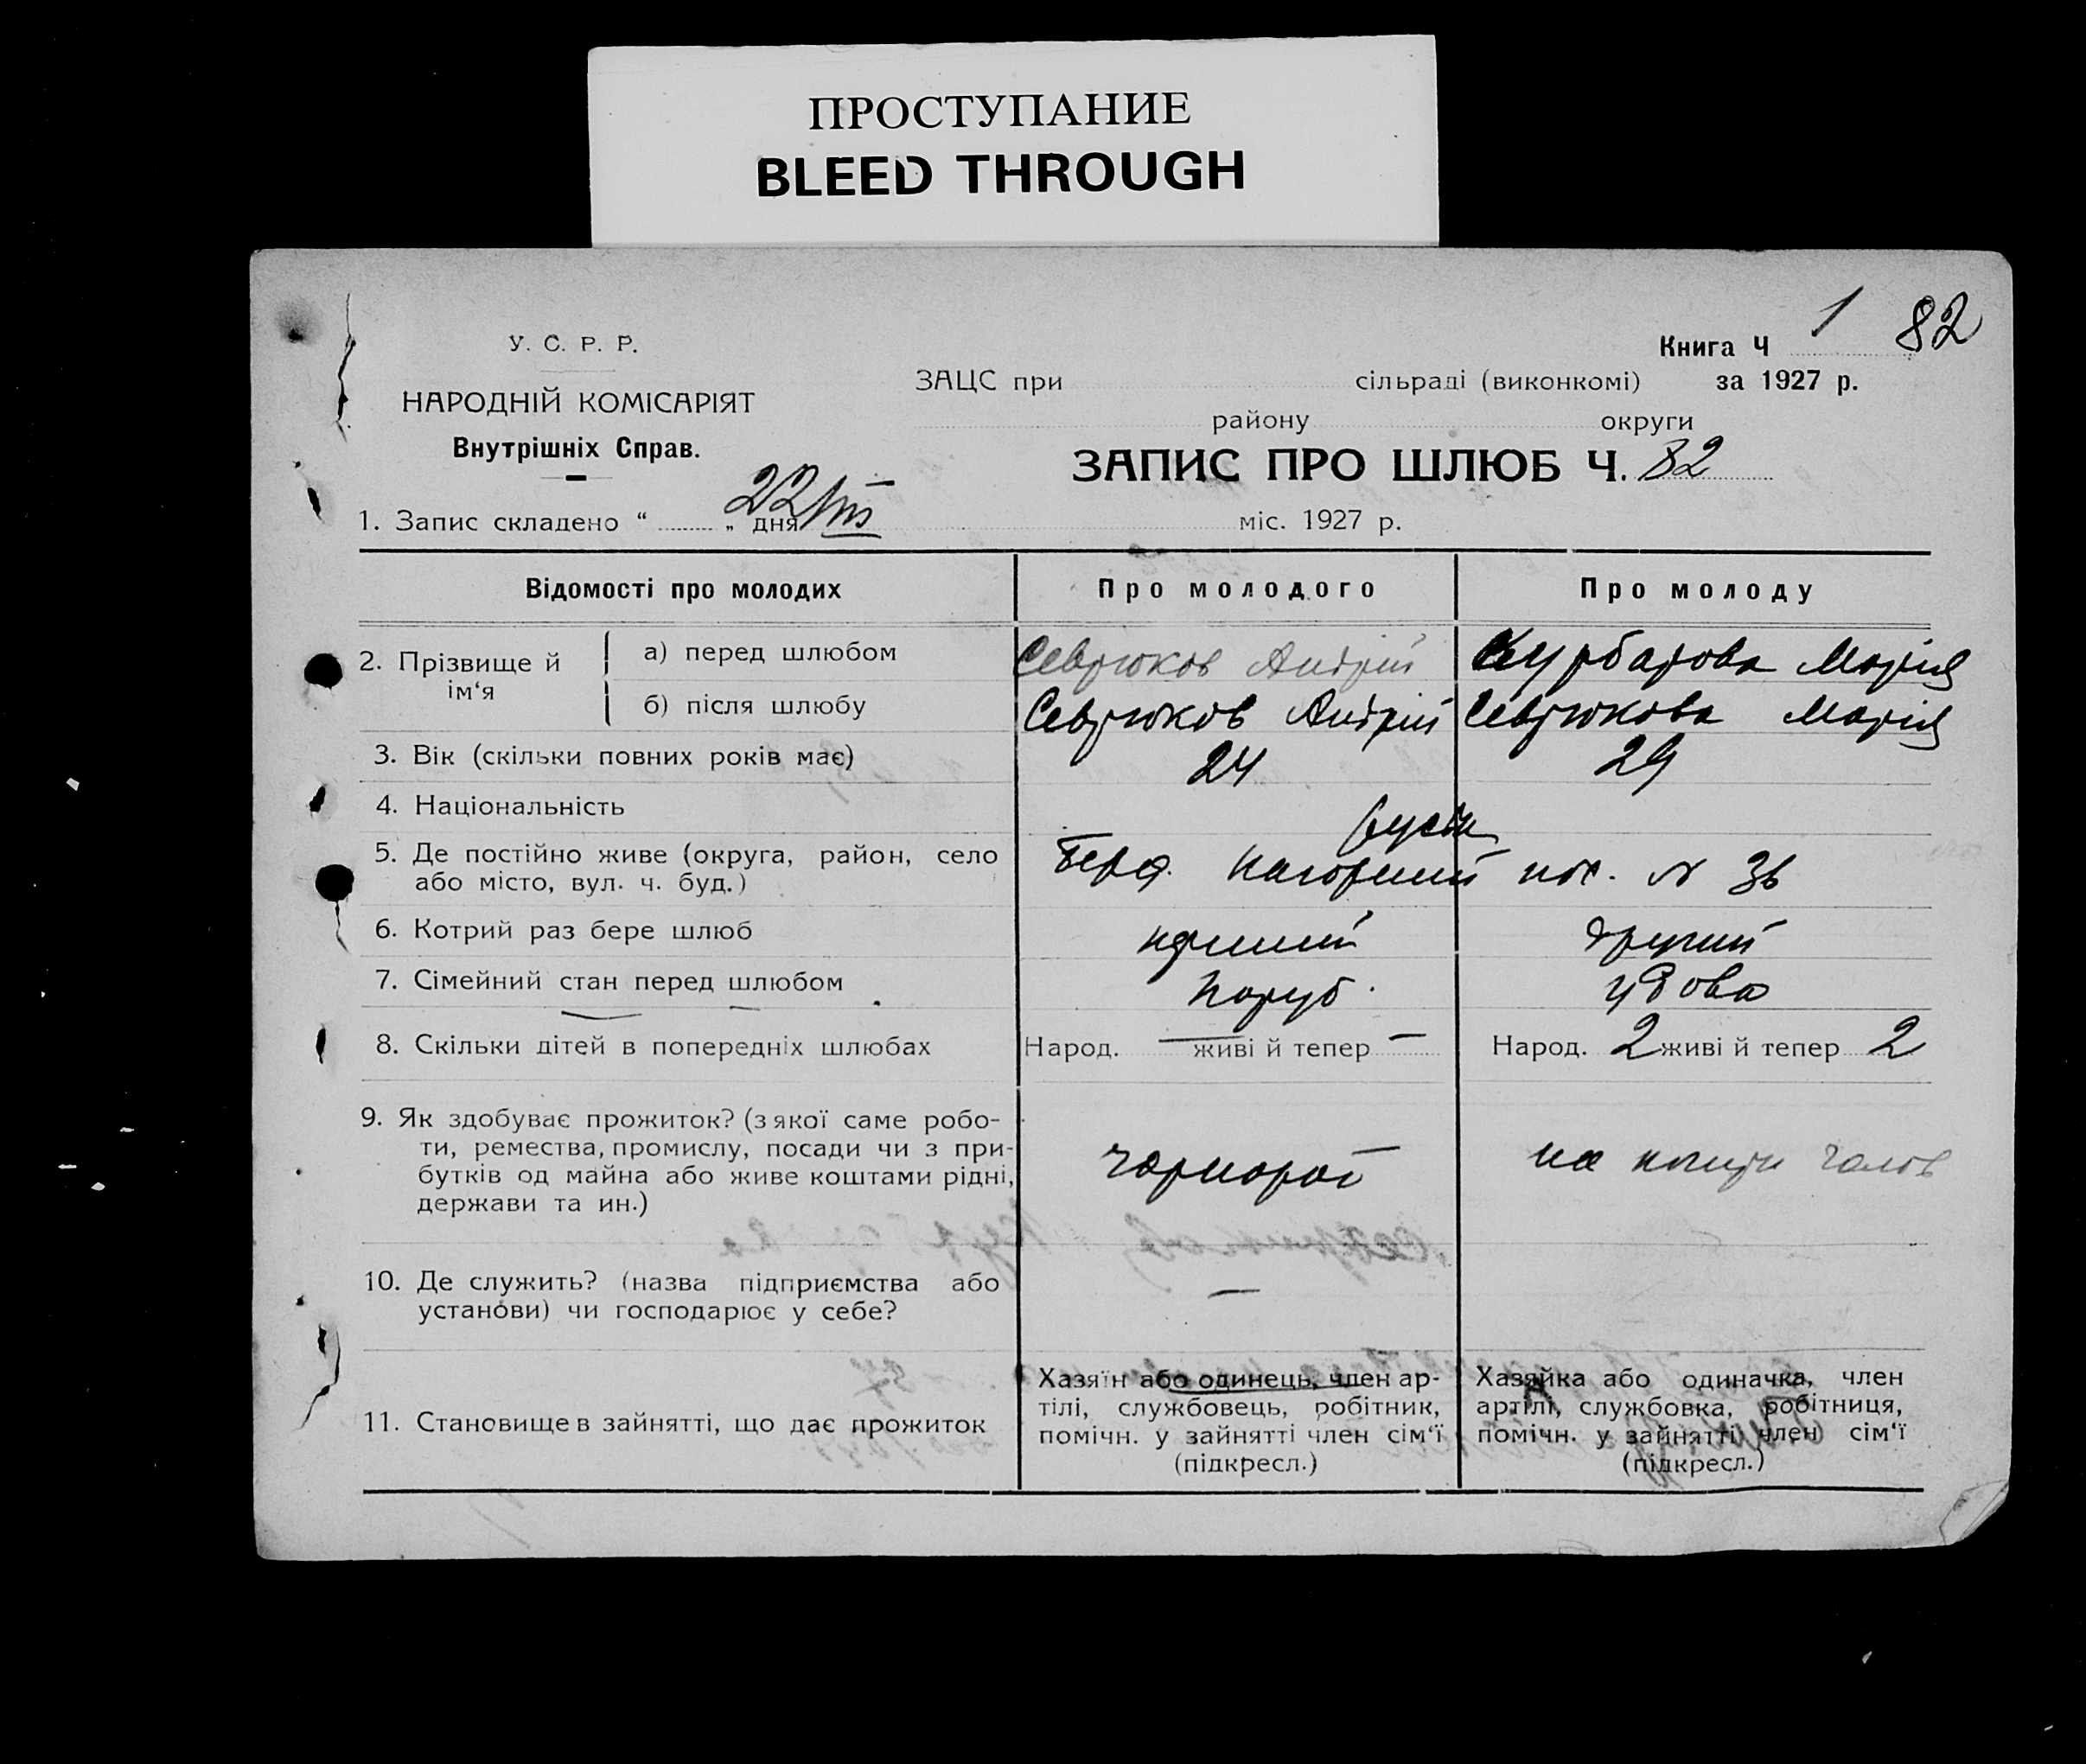 ПРОСТУПАНИЕ
BLEED THROUGH
У. С. Р. Р.
НАРОДНІЙ КОМІСАРІЯТ
Внутрішніх Справ.
Книга Ч 1 82
ЗАЦС при сільраді (виконкомі) за 1927 р.
району округи
ЗАПИС ПРО ШЛЮБ Ч. 82
1. Запис складено “ 22 „ дня III міс. 1927 р.
Відомості про молодих Про молодого Про молоду
2. Прізвище й ім‘я
а) перед шлюбом Севрюков Андрій Курбатова Марія
б) після шлюбу Севрюков Андрій Севрюкова Марія
3. Вік (скільки повних років має) 24 29
4. Національність руськ
5. Де постійно живе (округа, район, село
або місто, вул. ч. буд.) Берд. Нагорний пос. № 36
6. Котрий раз бере шлюб перший другий
7. Сімейний стан перед шлюбом Паруб. удова
8. Скільки дітей в попередніх шлюбах Народ. — живі й тепер — Народ. 2 живі й тепер 2
9. Як здобуває прожиток? (з якої саме робо-
ти, ремества, промислу, посади чи з при-
бутків од майна або живе коштами рідні, чорнороб на кошти чолов
держави та ин.)
10. Де служить? (назва підприємства або
установи) чи господарює у себе? —
11. Становище в зайнятті, що дає прожиток
Хазяїн або одинець, член ар-
тілі, службовець, робітник,
помічн. у зайнятті член сім‘ї
(підкресл.)
Хазяйка або одиначка, член
артілі, службовка, робітниця,
помічн. у зайнятті член сім‘ї
(підкресл.)